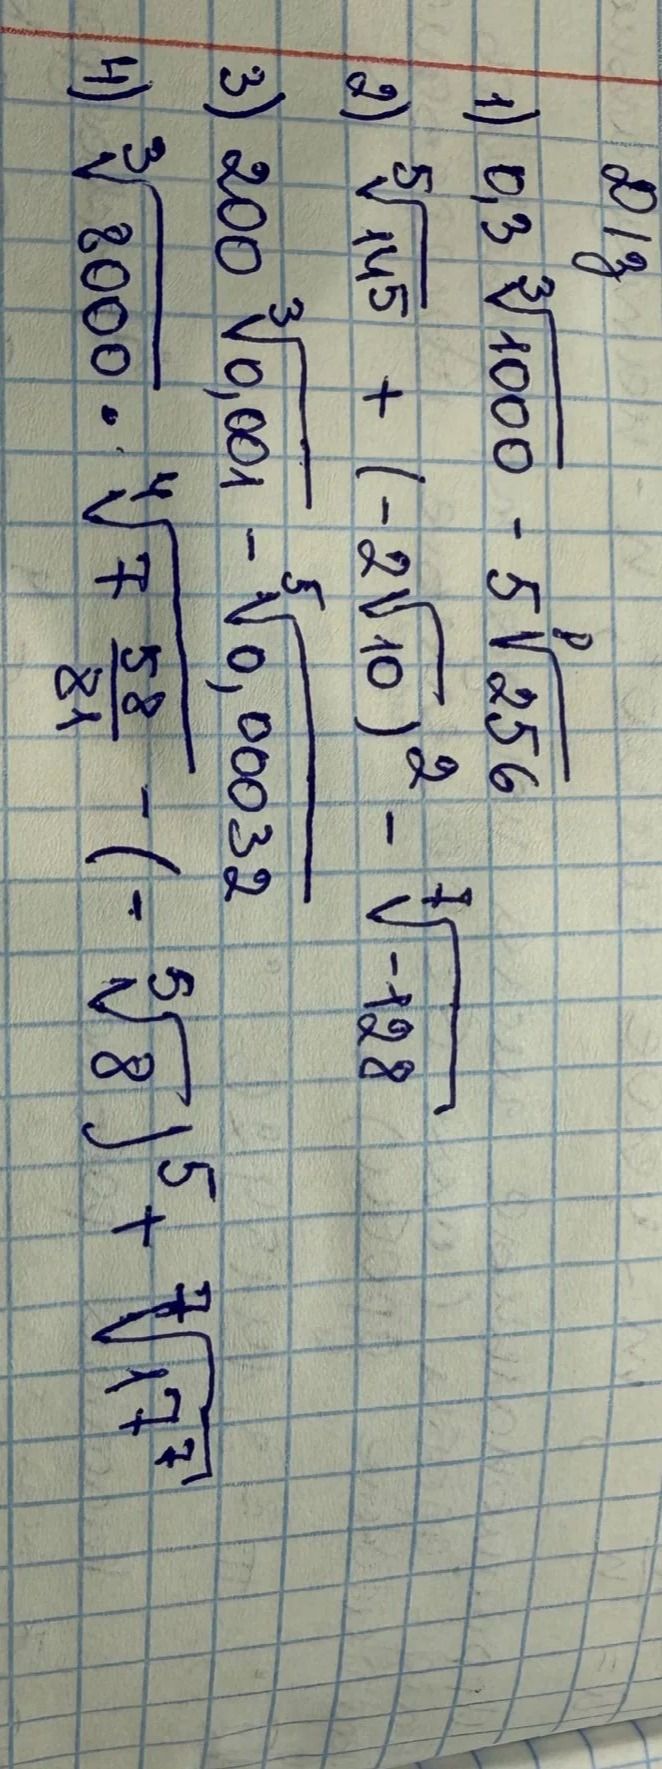 Д/з
1) 0,3 ∛1000 - 5 ⁸√256
2) ⁵√14⁵ + (-2√10)² - ⁷√-128
3) 200 ∛0,001 - ⁵√0,00032
4) ∛8000 · ⁴√7 58/81 - (-⁵√8)⁵ + ⁷√17⁷